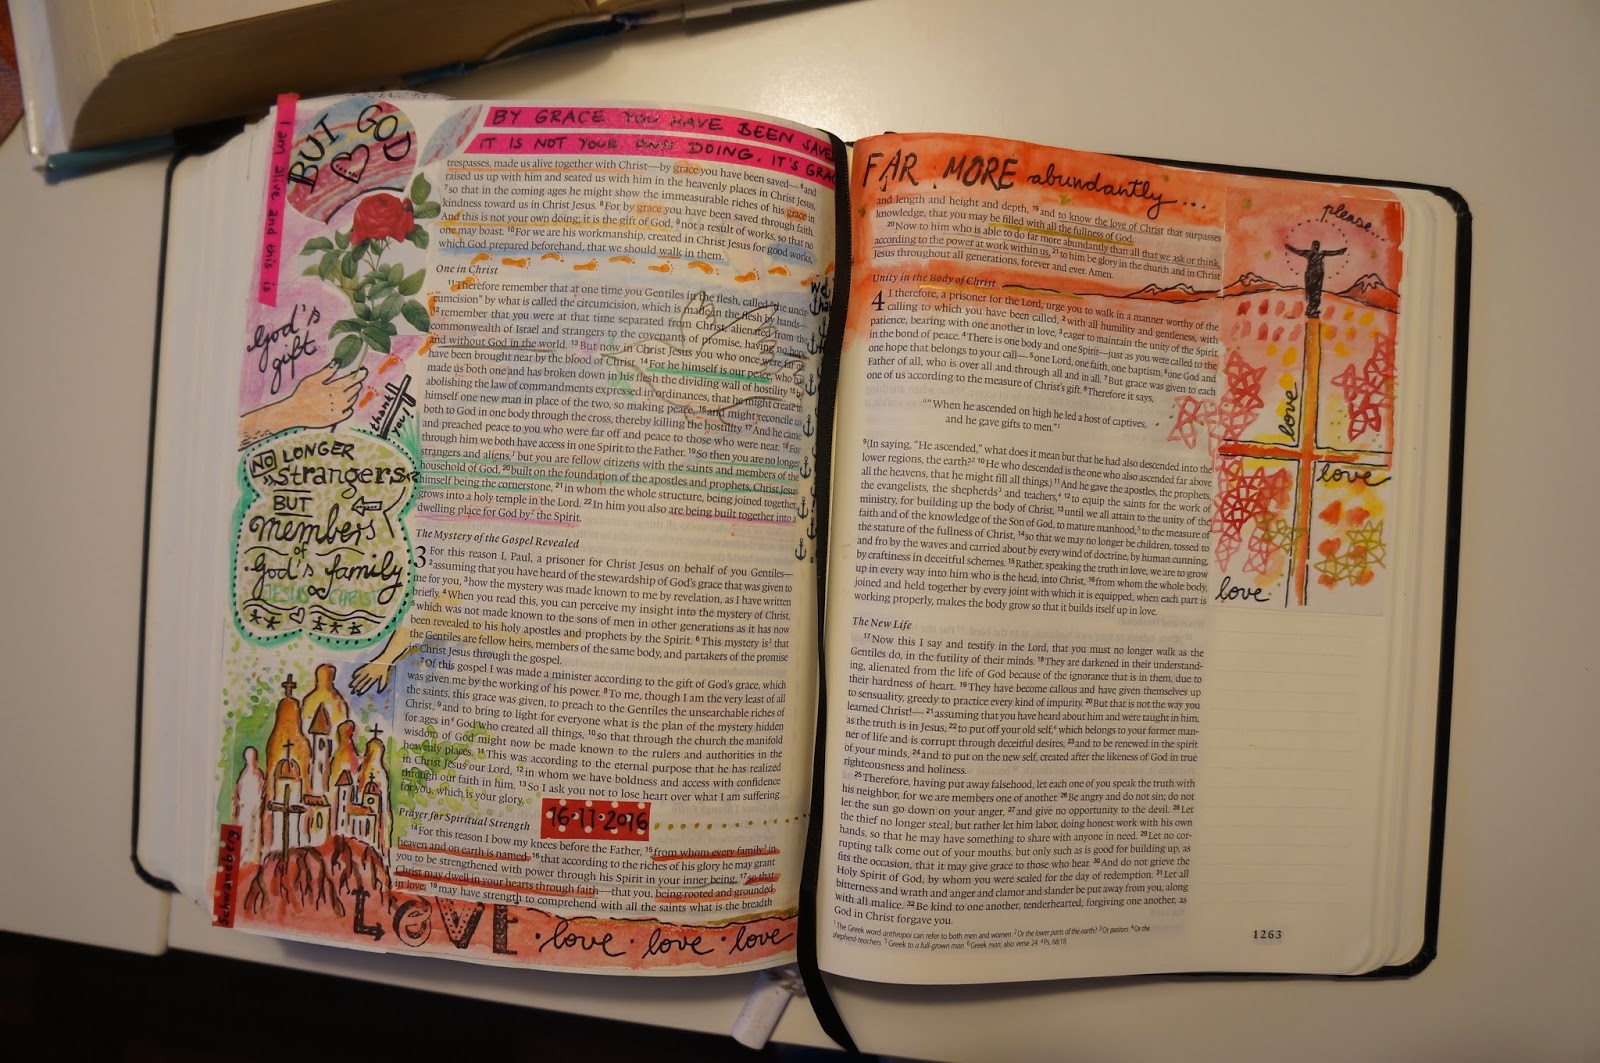 BUT GOD
I am alive and this is
God's
gift
thank
you!
NO LONGER
strangers
BUT
members
of
God's family
JESUS CHRIST
schwaneberg
BY GRACE YOU HAVE BEEN SAVE
IT IS NOT YOUR OWN DOING. IT'S GRA
trespasses, made us alive together with Christ—by grace you have been saved— 6 and
raised us up with him and seated us with him in the heavenly places in Christ Jesus,
7 so that in the coming ages he might show the immeasurable riches of his grace in
kindness toward us in Christ Jesus. 8 For by grace you have been saved through faith.
And this is not your own doing; it is the gift of God, 9 not a result of works, so that no
one may boast. 10 For we are his workmanship, created in Christ Jesus for good works,
which God prepared beforehand, that we should walk in them.
One in Christ
11 Therefore remember that at one time you Gentiles in the flesh, called "the uncir-
cumcision" by what is called the circumcision, which is made in the flesh by hands—
12 remember that you were at that time separated from Christ, alienated from the
commonwealth of Israel and strangers to the covenants of promise, having no hope
and without God in the world. 13 But now in Christ Jesus you who once were far off
have been brought near by the blood of Christ. 14 For he himself is our peace, who
made us both one and has broken down in his flesh the dividing wall of hostility 15 by
abolishing the law of commandments expressed in ordinances, that he might create in
himself one new man in place of the two, so making peace, 16 and might reconcile us
both to God in one body through the cross, thereby killing the hostility. 17 And he came
and preached peace to you who were far off and peace to those who were near. 18 For
through him we both have access in one Spirit to the Father. 19 So then you are no longer
strangers and aliens, but you are fellow citizens with the saints and members of the
household of God, 20 built on the foundation of the apostles and prophets, Christ Jesus
himself being the cornerstone, 21 in whom the whole structure, being joined together,
grows into a holy temple in the Lord. 22 In him you also are being built together into a
dwelling place for God by the Spirit.
The Mystery of the Gospel Revealed
3 For this reason I, Paul, a prisoner for Christ Jesus on behalf of you Gentiles—
2 assuming that you have heard of the stewardship of God's grace that was given to
me for you, 3 how the mystery was made known to me by revelation, as I have written
briefly. 4 When you read this, you can perceive my insight into the mystery of Christ,
5 which was not made known to the sons of men in other generations as it has now
been revealed to his holy apostles and prophets by the Spirit. 6 This mystery is that
the Gentiles are fellow heirs, members of the same body, and partakers of the promise
in Christ Jesus through the gospel.
7 Of this gospel I was made a minister according to the gift of God's grace, which
was given me by the working of his power. 8 To me, though I am the very least of all
the saints, this grace was given, to preach to the Gentiles the unsearchable riches of
Christ, 9 and to bring to light for everyone what is the plan of the mystery hidden
for ages in God who created all things, 10 so that through the church the manifold
wisdom of God might now be made known to the rulers and authorities in the
heavenly places. 11 This was according to the eternal purpose that he has realized
in Christ Jesus our Lord, 12 in whom we have boldness and access with confidence
through our faith in him. 13 So I ask you not to lose heart over what I am suffering
for you, which is your glory.
16·11·2016
Prayer for Spiritual Strength
14 For this reason I bow my knees before the Father, 15 from whom every family in
heaven and on earth is named, 16 that according to the riches of his glory he may grant
you to be strengthened with power through his Spirit in your inner being, 17 so that
Christ may dwell in your hearts through faith—that you, being rooted and grounded
in love, 18 may have strength to comprehend with all the saints what is the breadth
LOVE · love · love · love
FAR MORE abundantly...
and length and height and depth, 19 and to know the love of Christ that surpasses
knowledge, that you may be filled with all the fullness of God.
20 Now to him who is able to do far more abundantly than all that we ask or think,
according to the power at work within us, 21 to him be glory in the church and in Christ
Jesus throughout all generations, forever and ever. Amen.
Unity in the Body of Christ
4 I therefore, a prisoner for the Lord, urge you to walk in a manner worthy of the
calling to which you have been called, 2 with all humility and gentleness, with
patience, bearing with one another in love, 3 eager to maintain the unity of the Spirit
in the bond of peace. 4 There is one body and one Spirit—just as you were called to the
one hope that belongs to your call— 5 one Lord, one faith, one baptism, 6 one God and
Father of all, who is over all and through all and in all. 7 But grace was given to each
one of us according to the measure of Christ's gift. 8 Therefore it says,
"When he ascended on high he led a host of captives,
and he gave gifts to men."
9 (In saying, "He ascended," what does it mean but that he had also descended into the
lower regions, the earth? 10 He who descended is the one who also ascended far above
all the heavens, that he might fill all things.) 11 And he gave the apostles, the prophets,
the evangelists, the shepherds and teachers, 12 to equip the saints for the work of
ministry, for building up the body of Christ, 13 until we all attain to the unity of the
faith and of the knowledge of the Son of God, to mature manhood, to the measure of
the stature of the fullness of Christ, 14 so that we may no longer be children, tossed to
and fro by the waves and carried about by every wind of doctrine, by human cunning,
by craftiness in deceitful schemes. 15 Rather, speaking the truth in love, we are to grow
up in every way into him who is the head, into Christ, 16 from whom the whole body,
joined and held together by every joint with which it is equipped, when each part is
working properly, makes the body grow so that it builds itself up in love.
The New Life
17 Now this I say and testify in the Lord, that you must no longer walk as the
Gentiles do, in the futility of their minds. 18 They are darkened in their understand-
ing, alienated from the life of God because of the ignorance that is in them, due to
their hardness of heart. 19 They have become callous and have given themselves up
to sensuality, greedy to practice every kind of impurity. 20 But that is not the way you
learned Christ!— 21 assuming that you have heard about him and were taught in him,
as the truth is in Jesus, 22 to put off your old self, which belongs to your former man-
ner of life and is corrupt through deceitful desires, 23 and to be renewed in the spirit
of your minds, 24 and to put on the new self, created after the likeness of God in true
righteousness and holiness.
25 Therefore, having put away falsehood, let each one of you speak the truth with
his neighbor, for we are members one of another. 26 Be angry and do not sin; do not
let the sun go down on your anger, 27 and give no opportunity to the devil. 28 Let
the thief no longer steal, but rather let him labor, doing honest work with his own
hands, so that he may have something to share with anyone in need. 29 Let no cor-
rupting talk come out of your mouths, but only such as is good for building up, as
fits the occasion, that it may give grace to those who hear. 30 And do not grieve the
Holy Spirit of God, by whom you were sealed for the day of redemption. 31 Let all
bitterness and wrath and anger and clamor and slander be put away from you, along
with all malice. 32 Be kind to one another, tenderhearted, forgiving one another, as
God in Christ forgave you.
1 The Greek word anthropoi can refer to both men and women 2 Or the lower parts of the earth? 3 Or pastors 4 Or the
shepherd-teachers 5 Greek to a full-grown man 6 Greek man; also verse 24 a Ps. 68:18
1263
please...
love
love
love